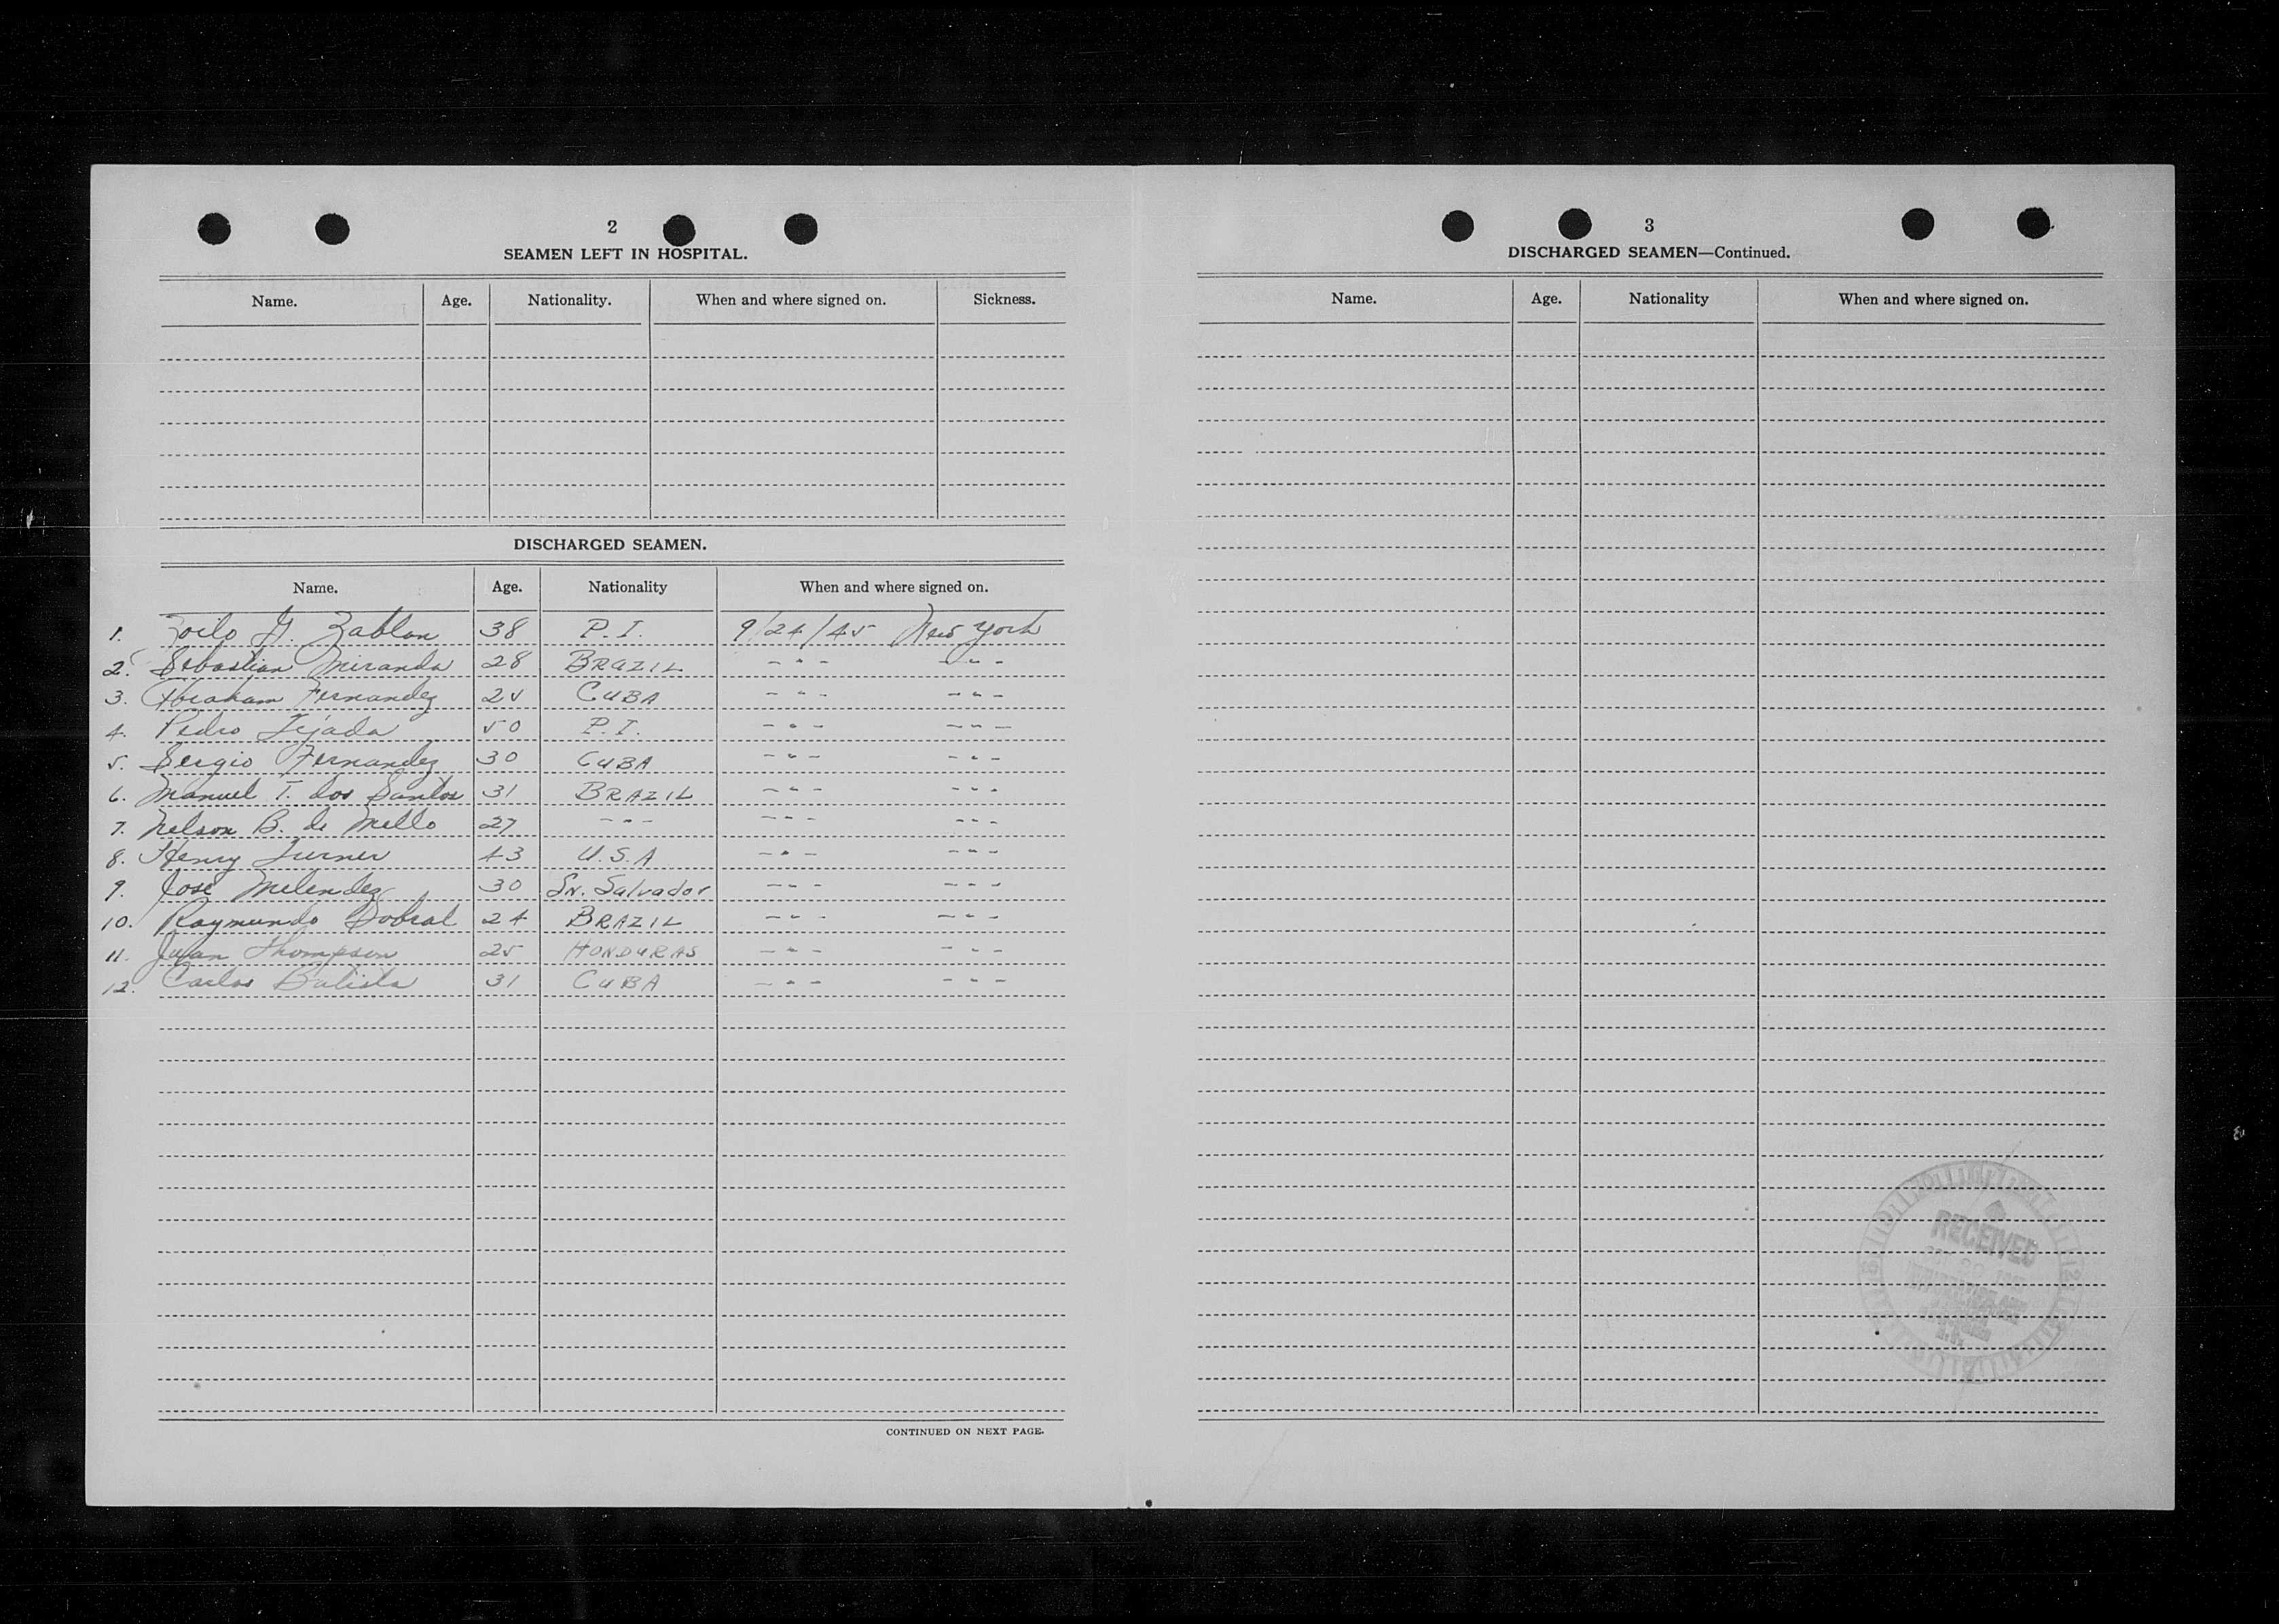 2
SEAMEN LEFT IN HOSPITAL.
Name. Age. Nationality. When and where signed on. Sickness.
DISCHARGED SEAMEN.
Name. Age. Nationality When and where signed on.
1. Zoilo G. Zablan 38 P.I. 9/24/45 New York
2. Sebastian Miranda 28 BRAZIL -"- -"-
3. Abraham Fernandez 25 CUBA -"- -"-
4. Pedro Tejada 50 P.I. -"- -"-
5. Sergio Fernandez 30 CUBA -"- -"-
6. Manuel T. dos Santos 31 BRAZIL -"- -"-
7. Nelson B. de Mello 27 -"- -"- -"-
8. Henry Turner 43 U.S.A -"- -"-
9. Jose Melendez 30 Sn. Salvador -"- -"-
10. Raymundo Sobral 24 BRAZIL -"- -"-
11. Juan Thompson 25 HONDURAS -"- -"-
12. Carlos Batista 31 CUBA -"- -"-
CONTINUED ON NEXT PAGE.
3
DISCHARGED SEAMEN—Continued.
Name. Age. Nationality When and where signed on.
RECEIVED